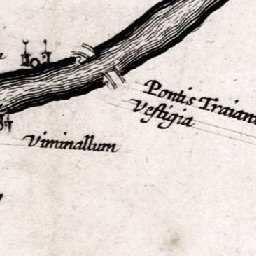 Pontis Traian
Vestigia
Viminallum